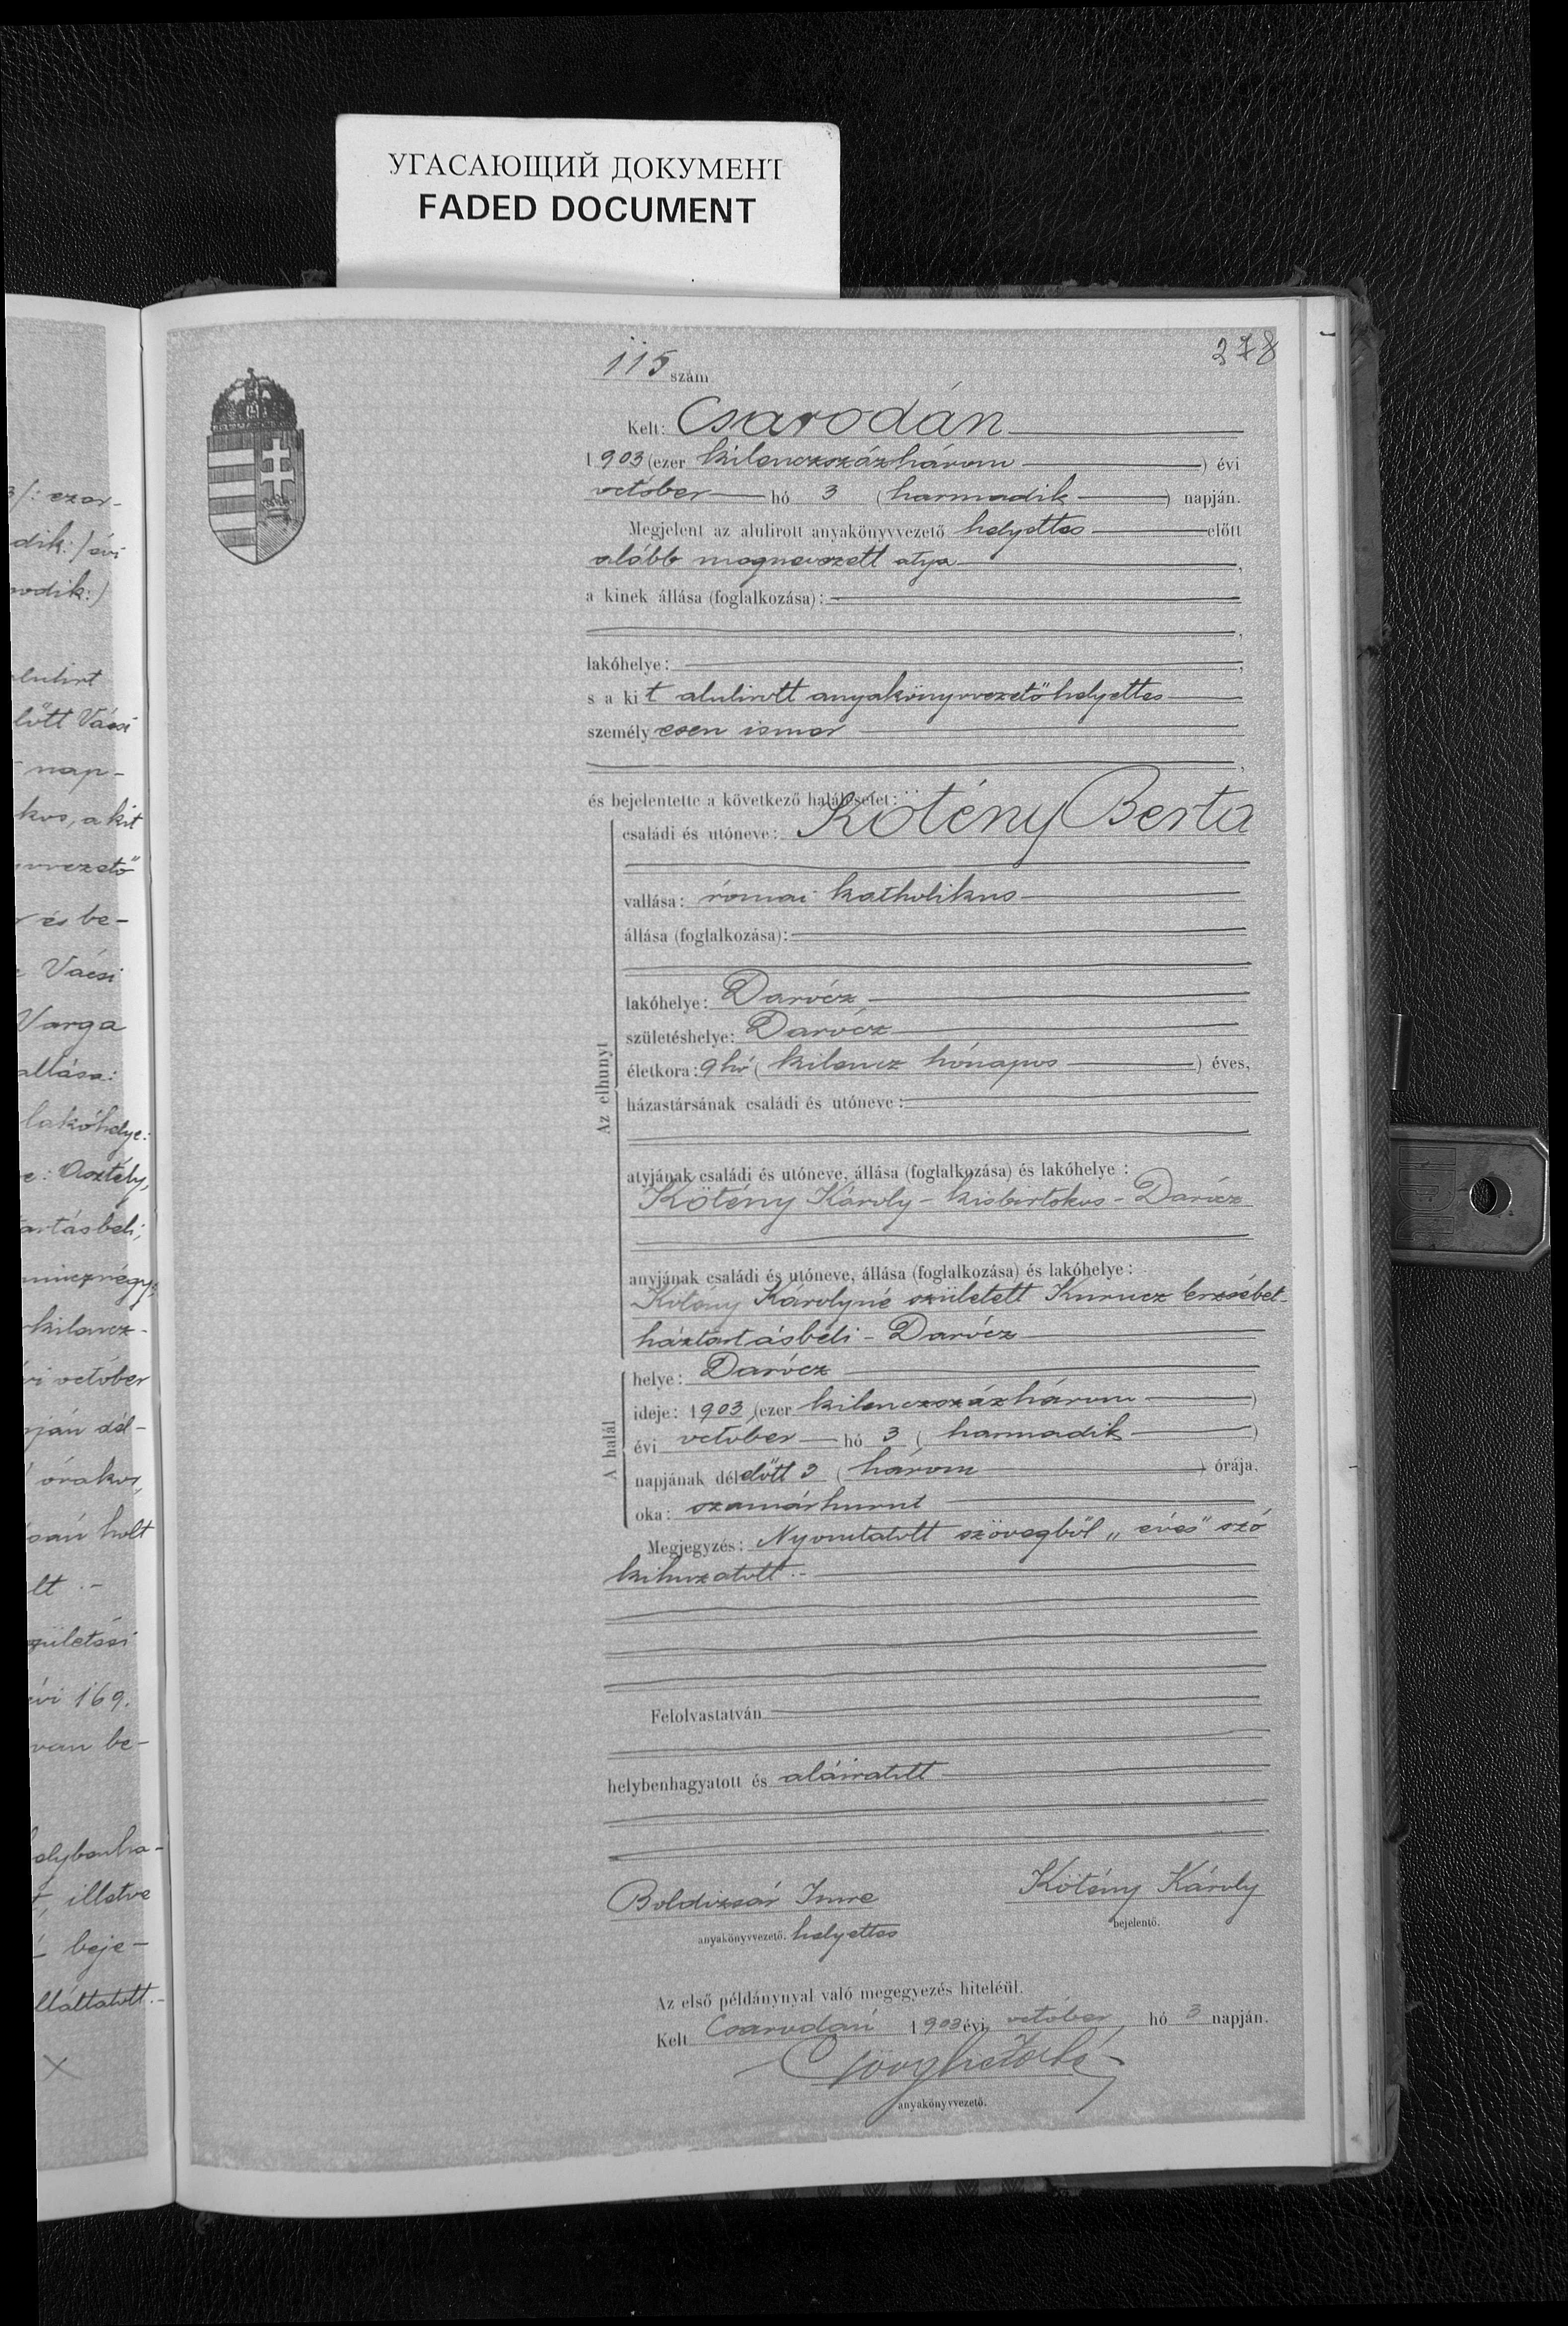 УГАСАЮЩИЙ ДОКУМЕНТ
FADED DOCUMENT
278
115 szám
Kelt: Csarodán
1903 (ezer kilenczszázhárom) évi
october hó 3 (harmadik) napján.
Megjelent az alulirott anyakönyvvezető helyettes előtt
alább megnevezett atya,
a kinek állása (foglalkozása):
lakóhelye:
s a kit alulirott anyakönyvvezető helyettes
személyesen ismer
és bejelentette a következő halálesetet:
családi és utóneve: Kötény Berta
vallása: római katholikus
állása (foglalkozása):
lakóhelye: Darócz
születéshelye: Darócz
életkora: 9 hó (kilencz hónapos) éves,
házastársának családi és utóneve:
Az elhunyt
atyjának családi és utóneve, állása (foglalkozása) és lakóhelye:
Kötény Károly - kisbirtokos - Darócz
anyjának családi és utóneve, állása (foglalkozása) és lakóhelye:
Kötény Károlyné született Kurucz Erzsébet -
háztartásbeli - Darócz
A halál
helye: Darócz
ideje: 1903 (ezer kilenczszázhárom)
évi october hó 3 (harmadik)
napjának délelőtt 3 (három) órája.
oka: szamárhurut
Megjegyzés: Nyomtatott szövegből „éves" szó
kihuzatott. -
Felolvastatván
helybenhagyatott és aláiratott
Boldizsár Imre
anyakönyvvezető. helyettes
Kötény Károly
bejelentő.
Az első példánynyal való megegyezés hiteléül.
Kelt Csarodán 1903 évi october hó 3 napján.
anyakönyvvezető.
3/: ezer-
dik:/ évi
alulirt
lőtt Vácsi
- nap-
kus, a kit
vvezető
r és be-
Vácsi
Varga
állása:
lakóhelye:
e: Asztély,
artásbeli,
kilencz-
vi october
pján dél-
órakor,
holt
lt . -
születési
évi 169.
van be-
elybenha-
t, illetve
beje-
lláttatott. -
X